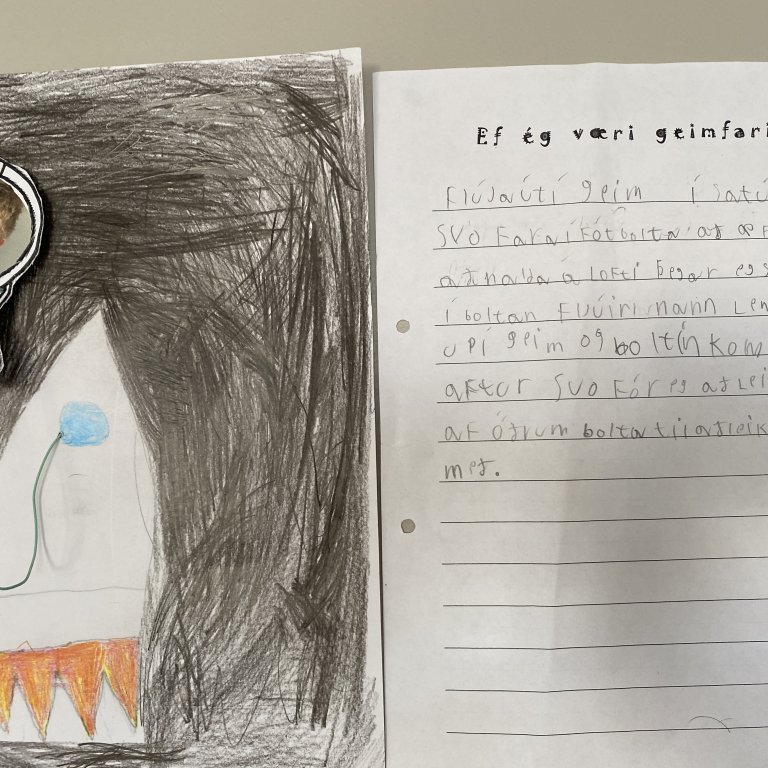 Ef ég væri geimfari
Fljúgaúti geim í satú
SVO Faraí Fótbolta at æF
at halda á Lofti þegar eg s
í boltan FLÚÚir mann Len
upí geim og boltin kom
aftur SVO Fór eg at Lei
aF Ótrum bolta til at leik
met.